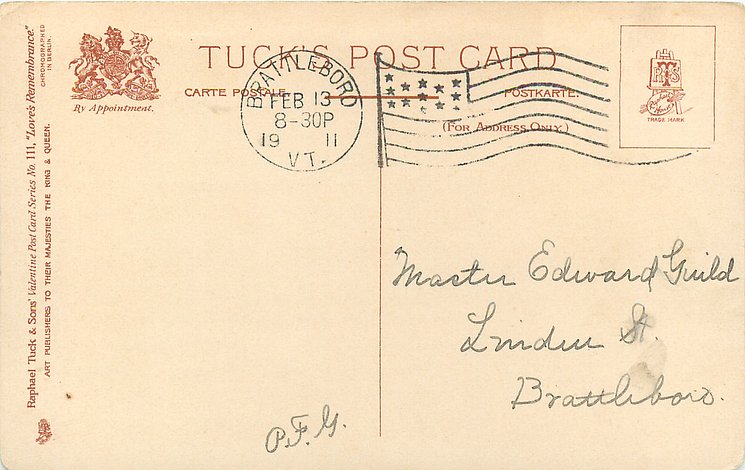 TUCK'S POST CARD
By Appointment.
CARTE POSTALE
POSTKARTE.
(FOR ADDRESS ONLY)
TRADE MARK
BRATTLEBORO
FEB 13
8-30P
19 11
VT.
Raphael Tuck & Sons' Valentine Post Card Series No. 111, "Love's Remembrance."
ART PUBLISHERS TO THEIR MAJESTIES THE KING & QUEEN.
CHROMOGRAPHED
IN BERLIN.
Master Edward Guild
Linden St.
Brattleboro.
P.F.G.